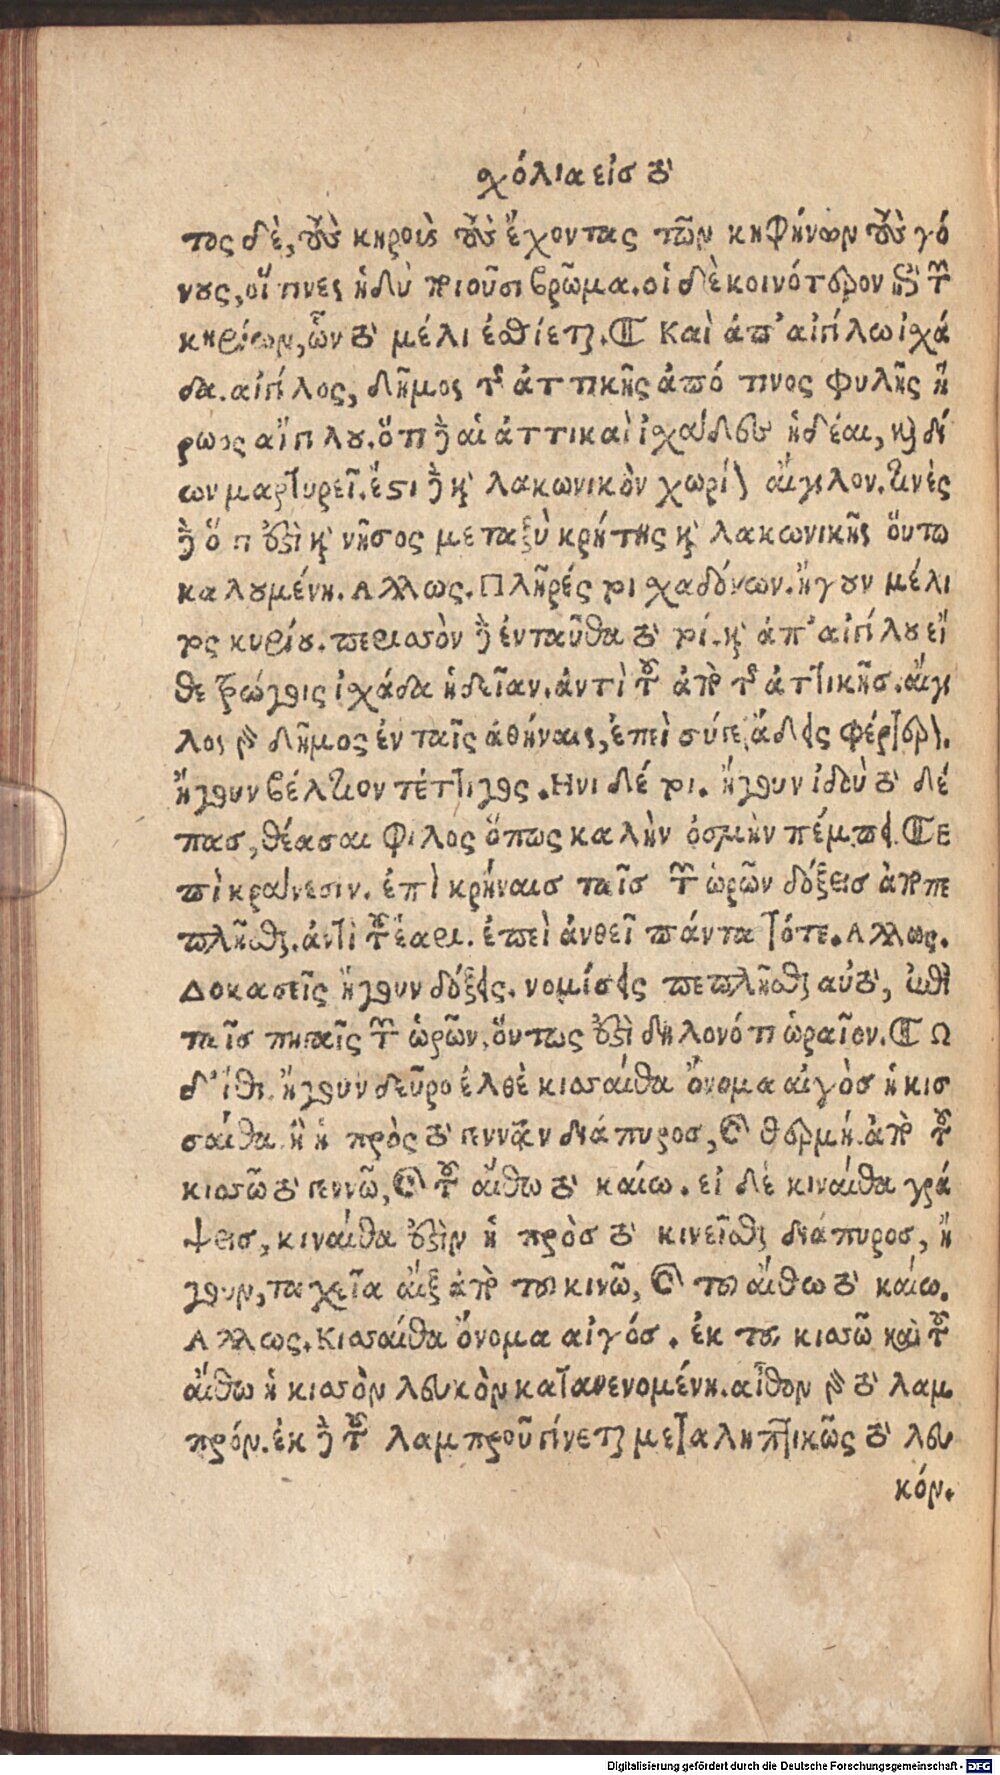 χόλια εἰσ τὸ
τος δὲ, τοὺς κηροὺς τοὺς ἔχοντας τῶν κηφήνων τοὺς γό
νους, οἵ τινες ἡδὺ ποιοῦσι βρῶμα. οἱ δὲ κοινότερον τῶν
κηρίων, ὧν τὸ μέλι ἐσθίεται. ¶ Καὶ ἀπ' αἰγίλω ἰσχά
δα. αἴγιλος, δῆμος τῆς ἀττικῆς ἀπό τινος φυλῆς ἢ
ρωος αἰγίλου. ὅτι δὲ αἱ ἀττικαὶ ἰσχάδες ἡδέαι, καὶ δί
ων μαρτυρεῖ. ἔστι δὲ καὶ λακωνικὸν χωρίον αἴγιλον. τινὲς
δὲ ὅτι ἐστὶ καὶ νῆσος μεταξὺ κρήτης καὶ λακωνικῆς οὕτω
καλουμένη. Αλλως. Πλῆρές τοι σχαδόνων. ἤγουν μέλι
τος κηρίου. περισσὸν δὲ ἐνταῦθα τὸ τοί. καὶ ἀπ' αἰγίλου εἴ
θε τρώγοις ἰσχάδα ἡδεῖαν. ἀντὶ τοῦ ἀπὸ τῆς ἀττικῆσ. αἴγι
λος γὰρ δῆμος ἐν ταῖς ἀθήναις, ἐπεὶ σύγε ᾄδεις φέρτερον.
ἤγουν βέλτιον τέττιγος. Ηνι δέ τοι. ἤγουν ἰδοὺ τὸ δέ
πασ, θέασαι φίλος ὅπως καλὴν ὀσμὴν πέμπει. ¶ Ε
πὶ κράνεσιν. ἐπὶ κρήναισ ταῖσ τῶν ὡρῶν δόξεισ ἀποπε
πλῆσθαι. ἀντὶ τοῦ ἔαρι. ἐπεὶ ἀνθεῖ πάντα τότε. Αλλως.
Δοκασεῖς ἤγουν δόξεις. νομίσεις πεπλῆσθαι αὐτὸ, ἐπὶ
ταῖσ πηγαῖς τῶν ὡρῶν, οὕτως ἐστὶ δηλονότι ὡραῖον. ¶ Ω
δ' ἴθι. ἤγουν δεῦρο ἐλθὲ κισσαίθα ὄνομα αἰγὸσ ἡ κισ
σαίθα. ἢ ἡ πρὸς τὸ γεννᾶν διάπυροσ, καὶ θερμή. ἀπὸ τοῦ
κισσῶ τὸ γεννῶ, καὶ τοῦ αἴθω τὸ καίω. εἰ δὲ κιναίθα γρά
ψεισ, κιναίθα ἐστὶν ἡ πρὸσ τὸ κινεῖσθαι διάπυροσ, ἤ
γουν, ταχεῖα αἲξ ἀπὸ του κινῶ, καὶ του αἴθω τὸ καίω.
Αλλως. Κισσαίθα ὄνομα αἰγόσ. ἐκ του κισσῶ καὶ τοῦ
αἴθω ἡ κισσὸν λευκὸν κατανενομένη. αἶθον γὰρ τὸ λαμ
πρόν. ἐκ δὲ τοῦ λαμπροῦ γίνεται μεταληπτικῶς τὸ λευ
κόν.
Digitalisierung gefördert durch die Deutsche Forschungsgemeinschaft - DFG